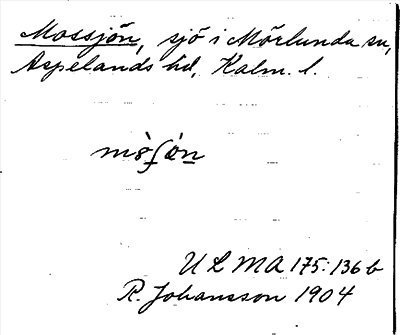 Mossjön, sjö i Mörlunda sn,
Aspelands hd, Kalm. l.
ULMA 175:136 b
R. Johansson 1904